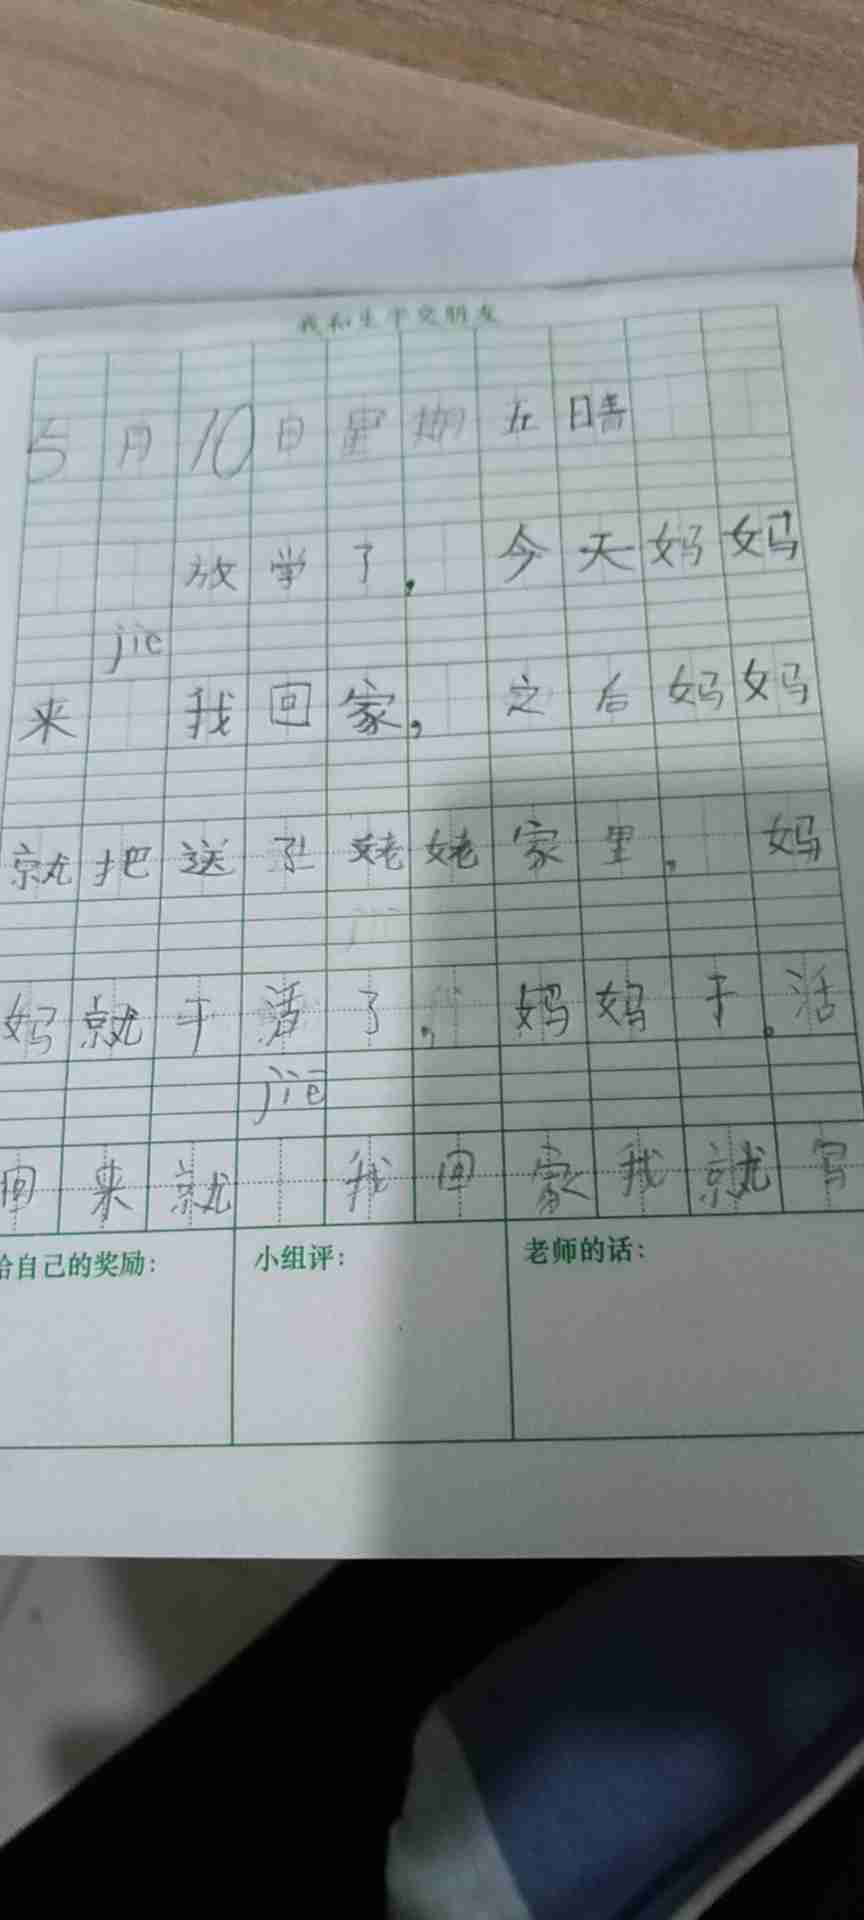 我和生字交朋友
5月10日星期五晴
放学了。今天妈妈
jie
来 我回家,之后妈妈
就把送到姥姥家里。妈
妈就干活了,妈妈干活
jiē
回来就 我回家我就写
给自己的奖励:
小组评:
老师的话: